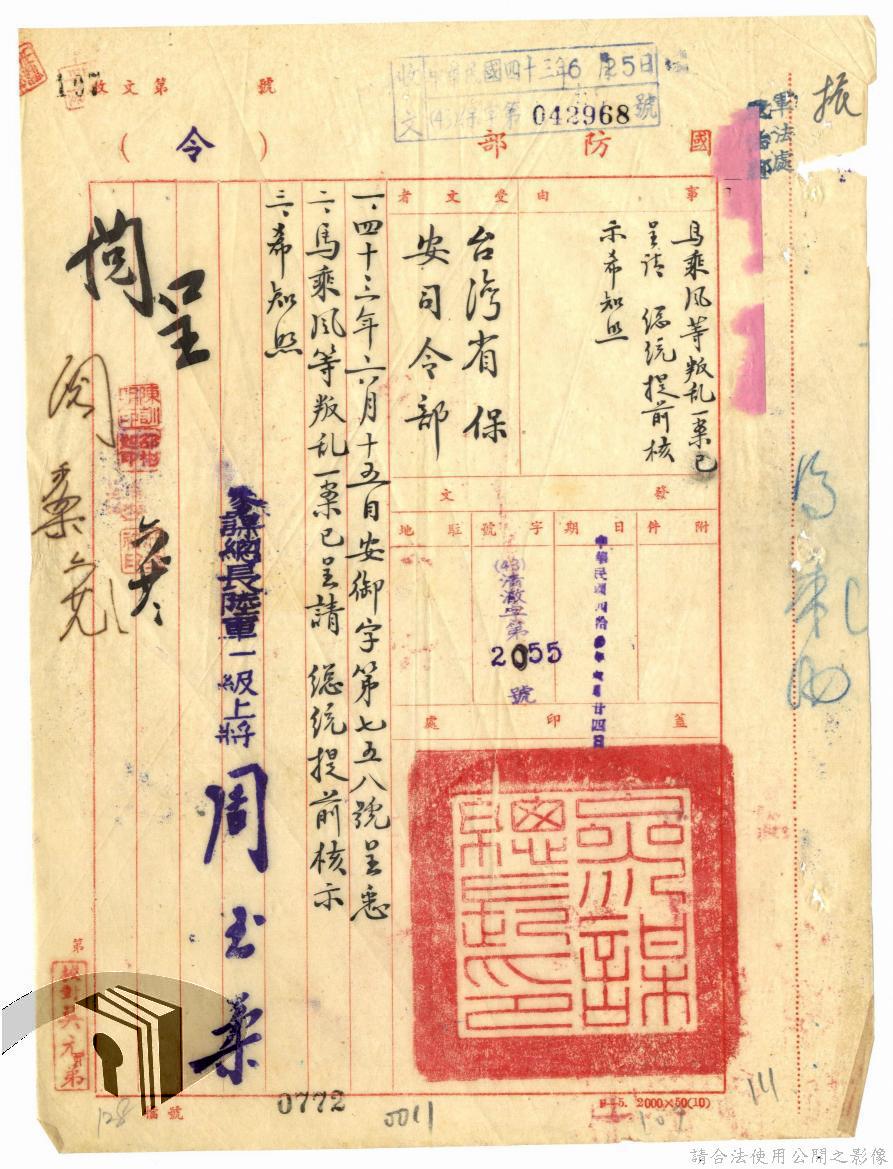 收文第 號
107
中華民國四十三年6月25日
字第042968號
收文
國防部
（令）
軍法處
振
事由
馬乘风等叛乱一案已
呈请 總統提前核
示希知照
受文者
台灣省保
安司令部
發文
附件
日期
中華民國四拾參年六月廿四日
字號
(43)清澈字第
2055
號
駐地
蓋印處
參謀總長印
一、四十三年六月十五日安御字第七五八號呈悉
二、馬乘风等叛乱一案已呈請 總統提前核示
三、希知照
參謀總長陸軍一級上將 周至柔
呈
閱
第
校對吳元弟
128
檔號
0772
0011
107
14
B-5. 2000×50(10)
請合法使用公開之影像